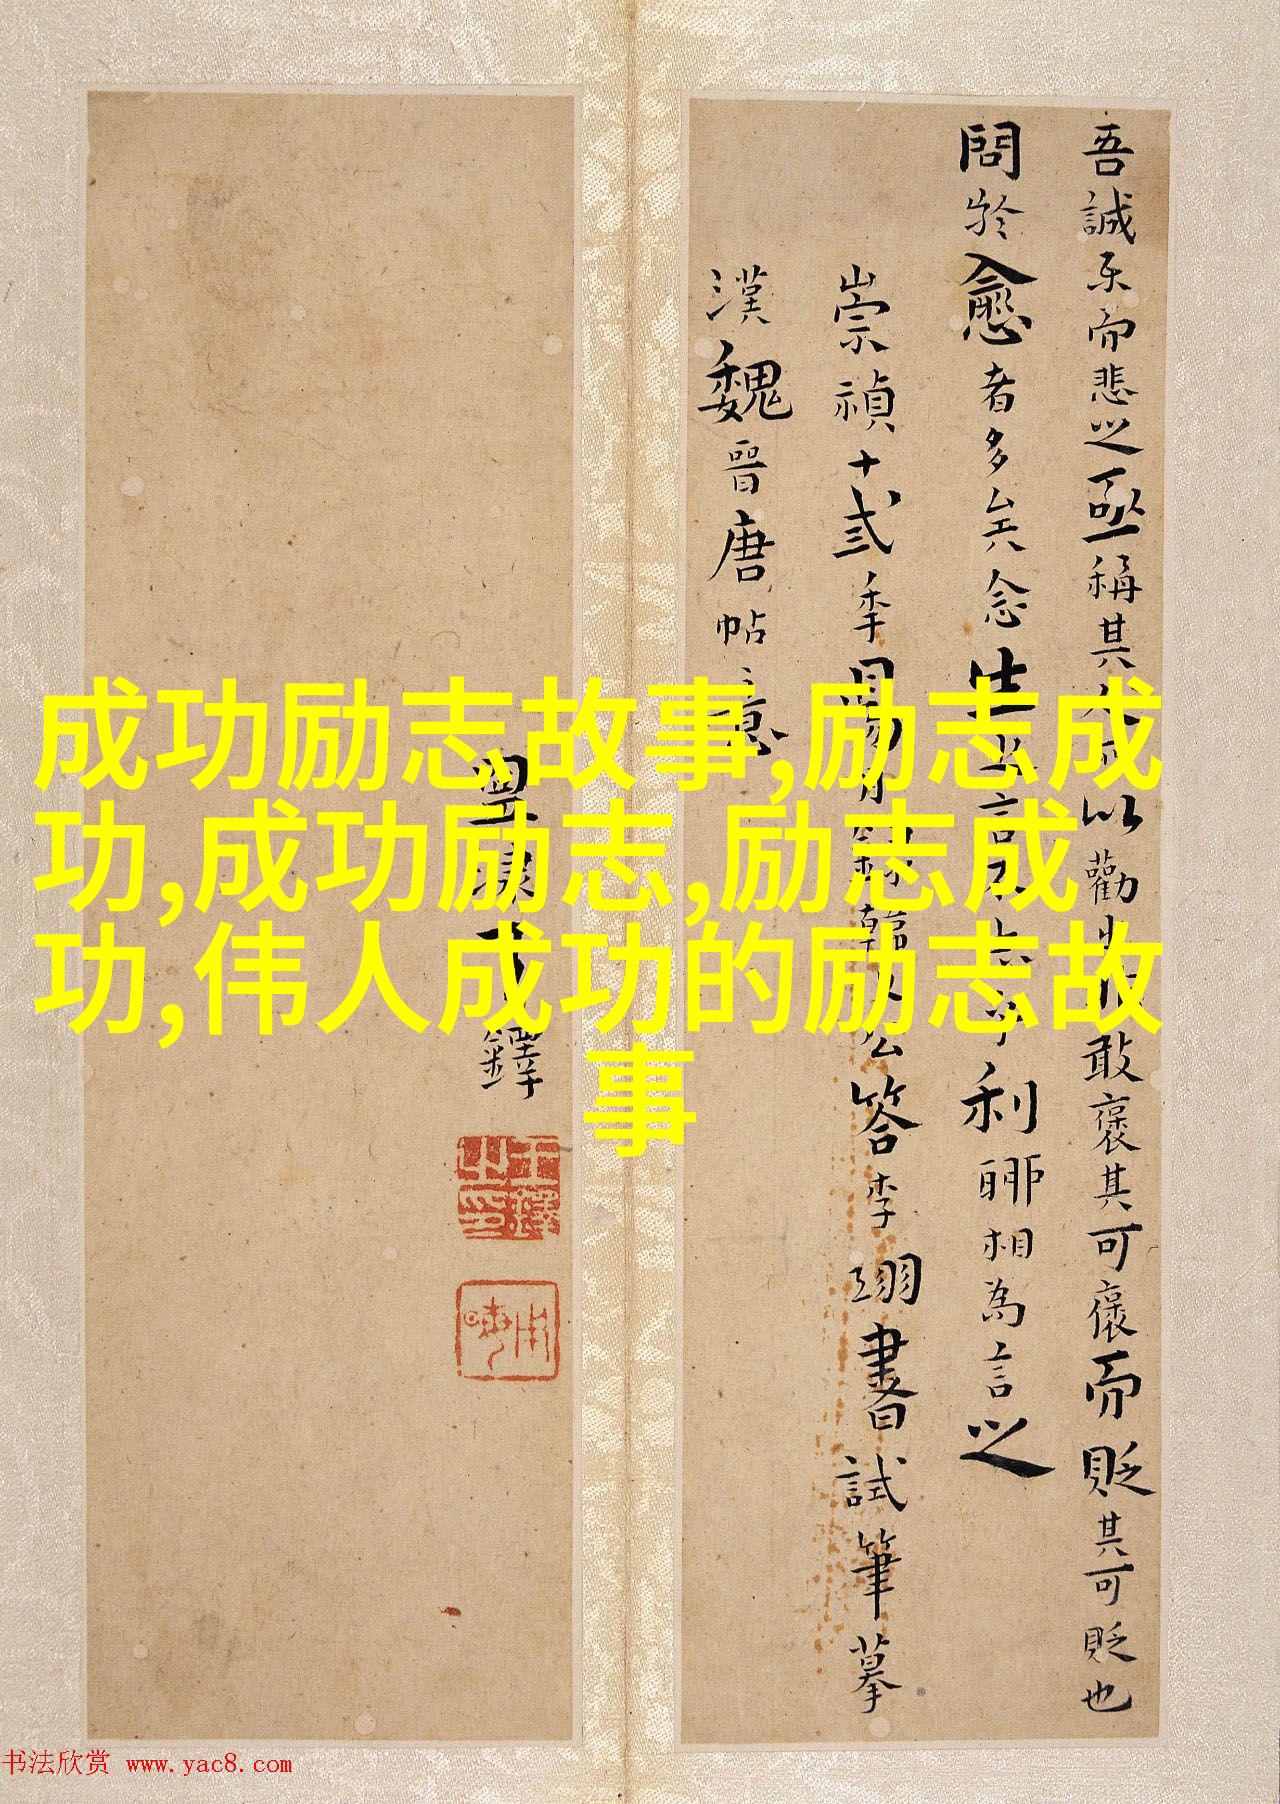 成功励志故事,励志成
功,成功励志,励志成
功,伟人成功的励志故
事
吾誠樂而悲之亟稱其人所以勸非敢褒其可褒而貶其可貶也
問於愈者多矣念生之言不志乎利聊相為言之
崇禎十貳季錄韓文公答李翊書試筆摹
漢魏晉唐帖意
鐸
王鐸之印
书法欣赏 www.yac8.com